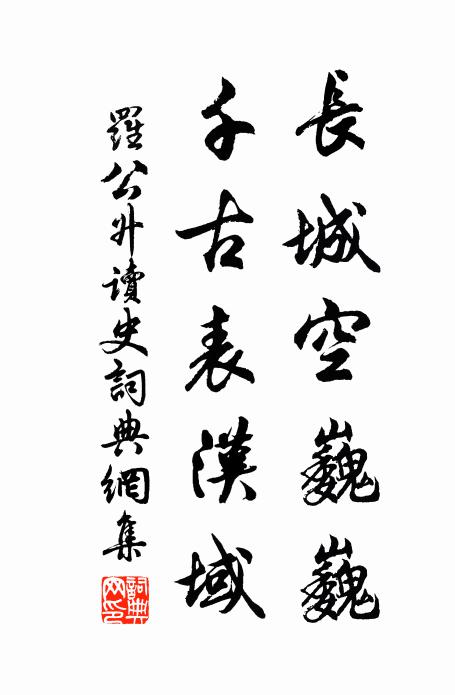 長城空巍巍
千古表漢域
羅公升讀史詞典網集
詞典網印